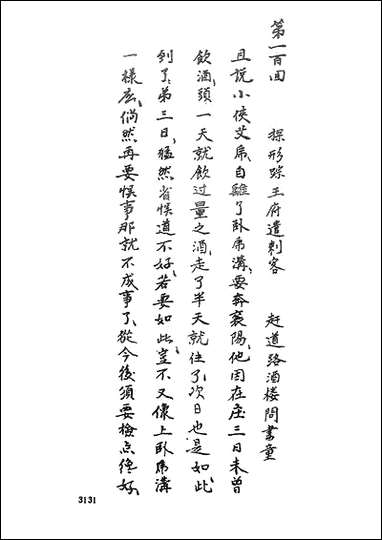 第一百回　探形踪王府遣刺客　赶道路酒楼問書童
且説小俠艾虎自離了卧虎溝要奔襄陽他因在庄三日未曾
飲酒頭一天就飲过量之酒走了半天就住了次日也是如此
到了弟三日猛然省悮道不好若要如此豈不又像上卧虎溝
一樣庅倘然再要悮事那就不成事了從今後須要檢点終好
3131